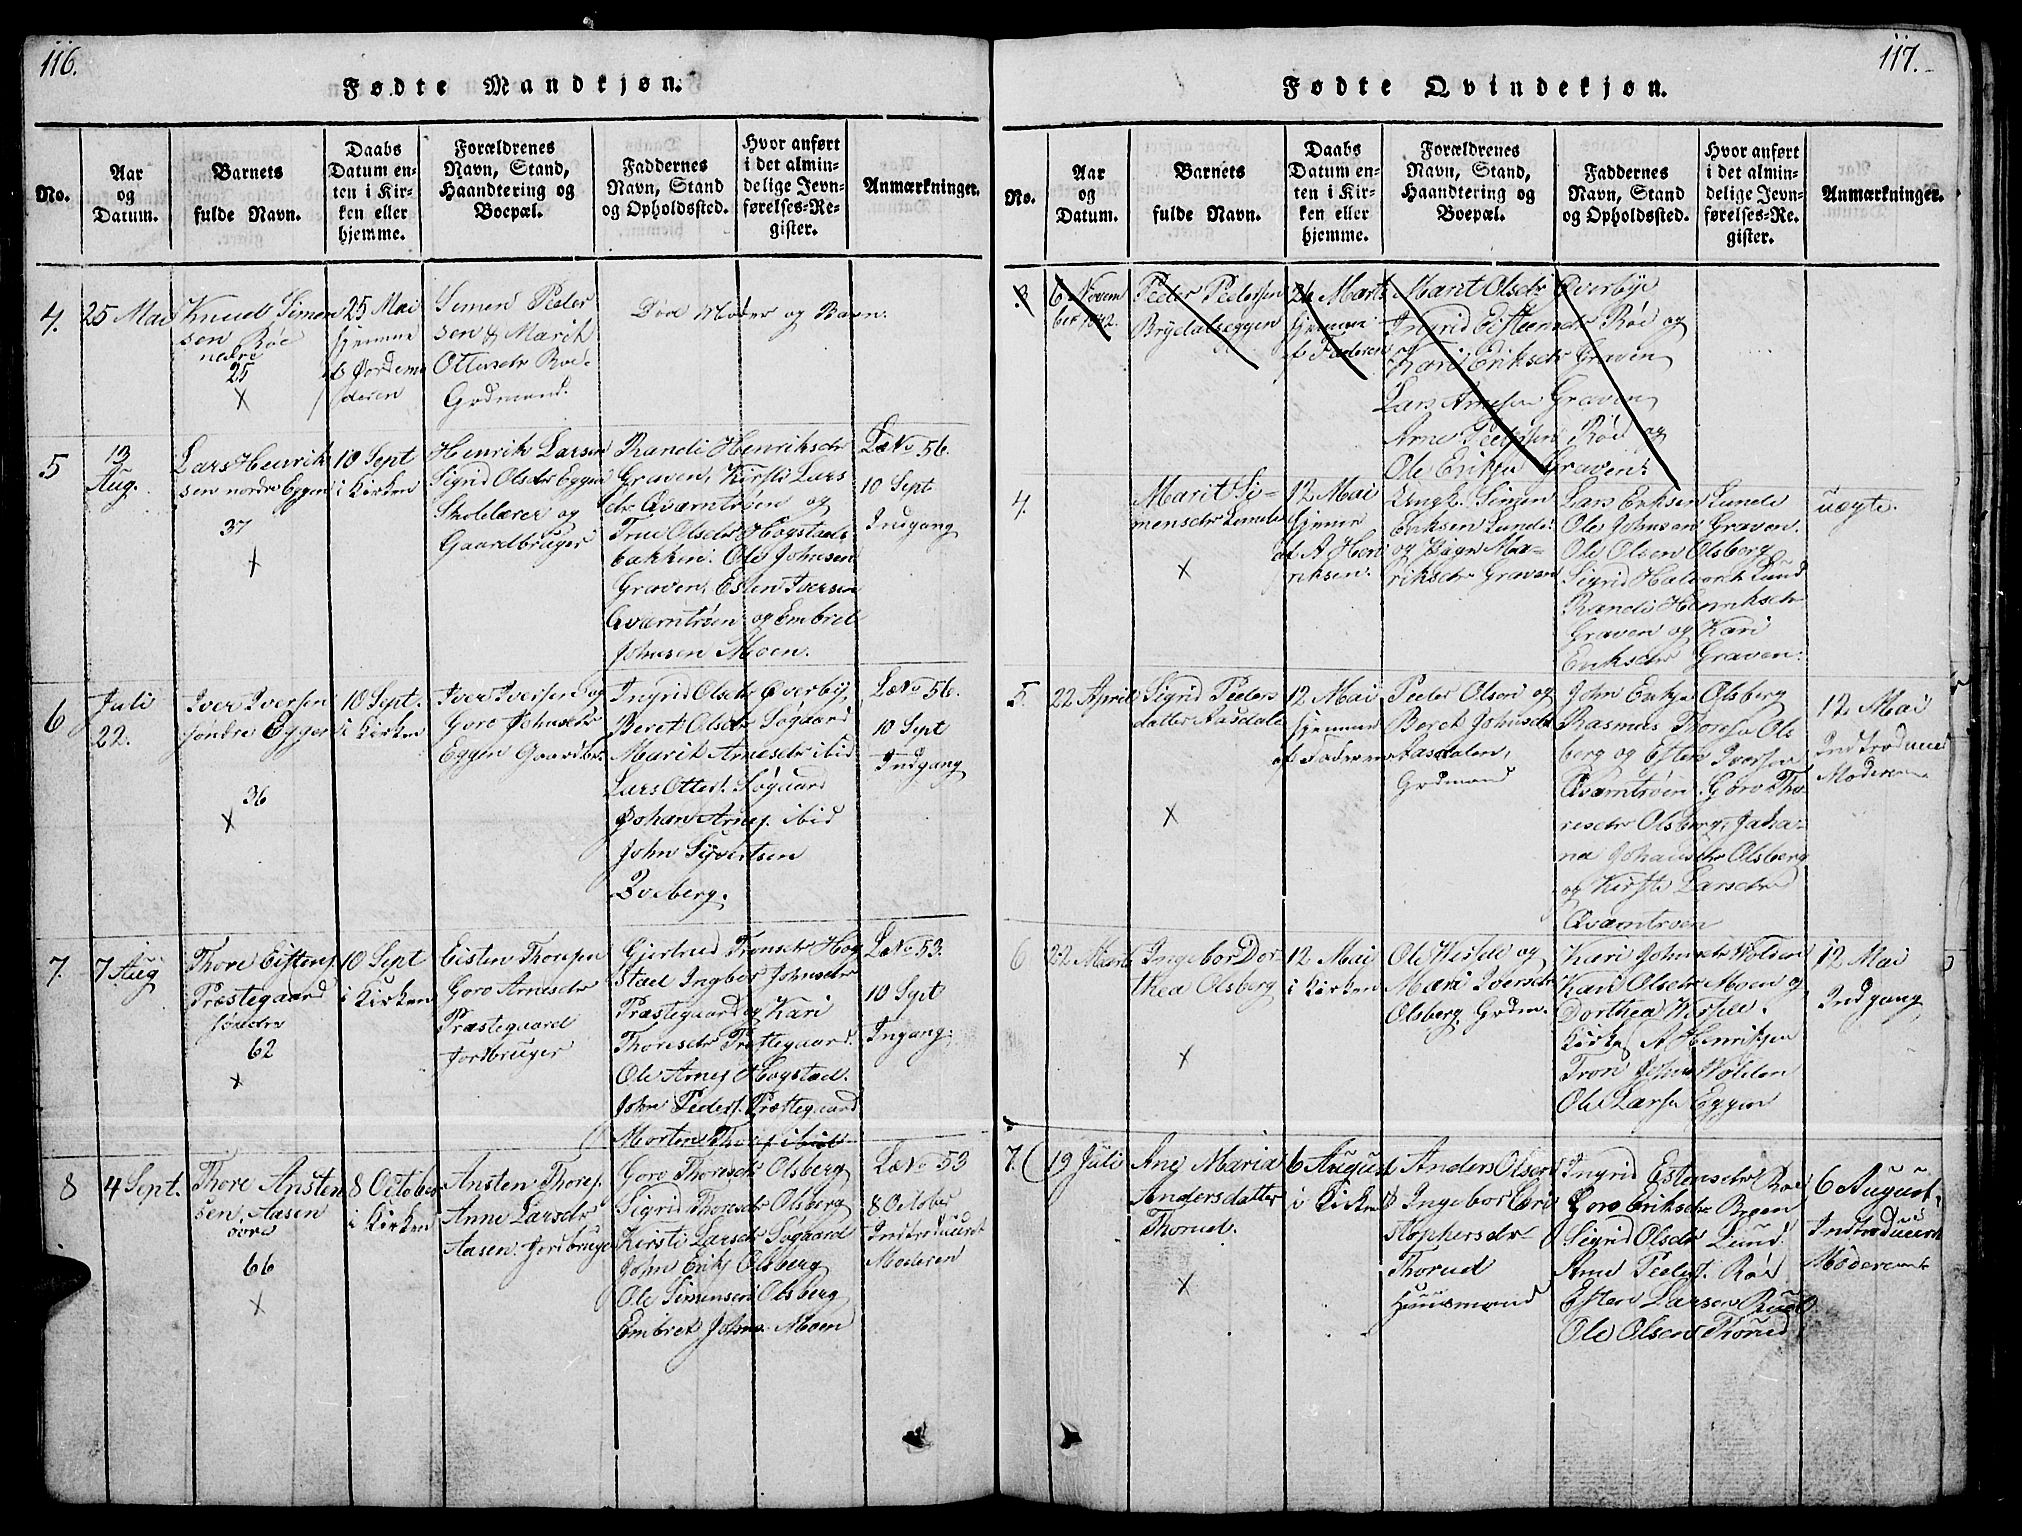 116.
Fødte Mandkjøn.
No.
Aar
og
Datum.
Barnets
fulde Navn.
Daabs
Datum en-
ten i Kir-
ken eller
hjemme.
Forældrenes
Navn, Stand,
Haandtering og
Boepæl.
Faddernes
Navn, Stand
og Opholdssted.
Hvor anført
i det almin-
delige Jevn-
førelses-Re-
gister.
Anmærkninger.
4.
25 Mai
Knud Simen
sen Røe
nedre
25
X
25 Mai
hjemme
Simen Peder
sen & Marit
Ottersdr Roe.
Grdmand.
Døde Moder og Barn.
5
13
Aug.
Lars Henrik
sen nordre Eggen
37
X
10 Sept
i Kirken
Henrik Larsen
Sigrid Olsdr Eggen
Skolelærer og
Gaardbruger
Randi Henriksdr
Graven, Kirsti Lars
dr Qværntrøen og
Trud Olsdr Hogstads
bakken. Ole Johnsen
Graven, Esten Iversen
Qværntrøen og Embret
Johnsen Moen.
La No 56.
10 Sept
Indgang
6
Juli
22.
Iver Iversen
søndre Eggen
36
X
10 Sept.
i Kirken
Iver Iversen og
Goro Johnsdr
Eggen Gaardbr.
Ingrid Olsdr Øverby,
Beret Olsdr Søgaard
Marit Arnesdr ibid
Lars Otters. Søgaard
Johan Arnes. ibid
John Syvertsen
Broberg.
La No 56.
10 Sept
Indgang
7.
7 Aug
Thore Eistens.
Præstegaard
søndre
62
X
10 Sept
i Kirken
Eisten Thoresen
Goro Arnesdr
Præstegaard
Jordbruger
Gjertrud Tronsdr Hog
stad Ingbor Johnsdr
Præstegaard og Kari
Thoresdr Præstegaard.
Ole Arnes Hogstad.
John Peders. Præstegaard
Morten Thores. ibid
La No 53.
10 Sept
Ingang.
8
4 Sept.
Thore Ansten
sen Aasen
øvre
66
X
8 October
i Kirken
Ansten Thores.
Anne Larsdr
Aasen. Jordbruger
Goro Thoresdr Olsberg
Sigrid Thoresdr Olsberg
Kirsti Larsdr Søgaard
John Eriks Olsberg
Ole Simensen Olsberg
Embret Johns. Moen
La No 53
8 October
Indtroduceret
Moderen
117.
Fødte Qvindekjøn.
No.
Aar
og
Datum.
Barnets
fulde Navn.
Daabs
Datum en-
ten i Kir-
ken eller
hjemme.
Forældrenes
Navn, Stand,
Haandtering og
Boepæl.
Faddernes
Navn, Stand
og Opholdssted.
Hvor anført
i det almin-
delige Jevn-
førelses-Re-
gister.
Anmærkninger.
3
6 Novem
ber 1842.
Peder Pedersen
Brydalseggen
26 Marts
hjemme
af Faderen
Marit Olsdr Øverbye
Ingrid Eistensdr Røe og
Kari Eriksdr Graven
Lars Arnesen Graven
Arne Pedersen Røe og
Ole Eriksen Graven.
4.
Marit Si-
mensdr Lunde
X
12 Mai
hjemme
af A Hen
riksen.
Ungk. Simen
Eriksen Lunde
og Pigen Ma-
Eriksdr Graven
Lars Eriksen Lunde
Ole Johnsen Graven.
Ole Olsen Olsberg
Sigrid Halvorsd. Lund
Randi Henriksdr
Graven og Kari
Eriksdr Graven.
uægte.
5.
22 April
Sigrid Peders
datter Aasdale
X
12 Mai
hjemme
af Faderen
Peder Olsen og
Beret Johnsdr
Aasdalen,
Grdmand
John Eriks. Olsberg
Rasmus Thoresen Ols
berg og Esten Iversen
Qværntrøen. Goro Tho
resdr Olsberg, Joha-
na Johansdr Olsberg
og Kirsti Larsdr
Qværntrøen
12 Mai
Indtroduceret
Moderen
6
22 Marts
Ingebor Dor-
thea Olsberg
X
12 Mai
i Kirken
Ole Wespe og
Mari Iversdr
Olsberg. Grdm.
Kari Johnsdr Wolden
Kari Olsdr Moen og
Dorthea Wespe.
Kirkes. A. Henriksen
Tron Johns Wolden
Ole Larsen Eggen
12 Mai
Indgang
7.
19 Juli
Ane Maria
Andersdatter
Thorud.
X
6 August
i Kirken
Anders Olsen
& Ingebor Chri
stophersdr
Thorud
Huusmand
Ingrid Estensdr Roe
Goro Eriksdr Breen
Sigrid Olsdr Lund
Arne Peders. Røe
Esten Larsen Ruud
Ole Olsen Thorud
6 August.
Indtroduceret
Moderen